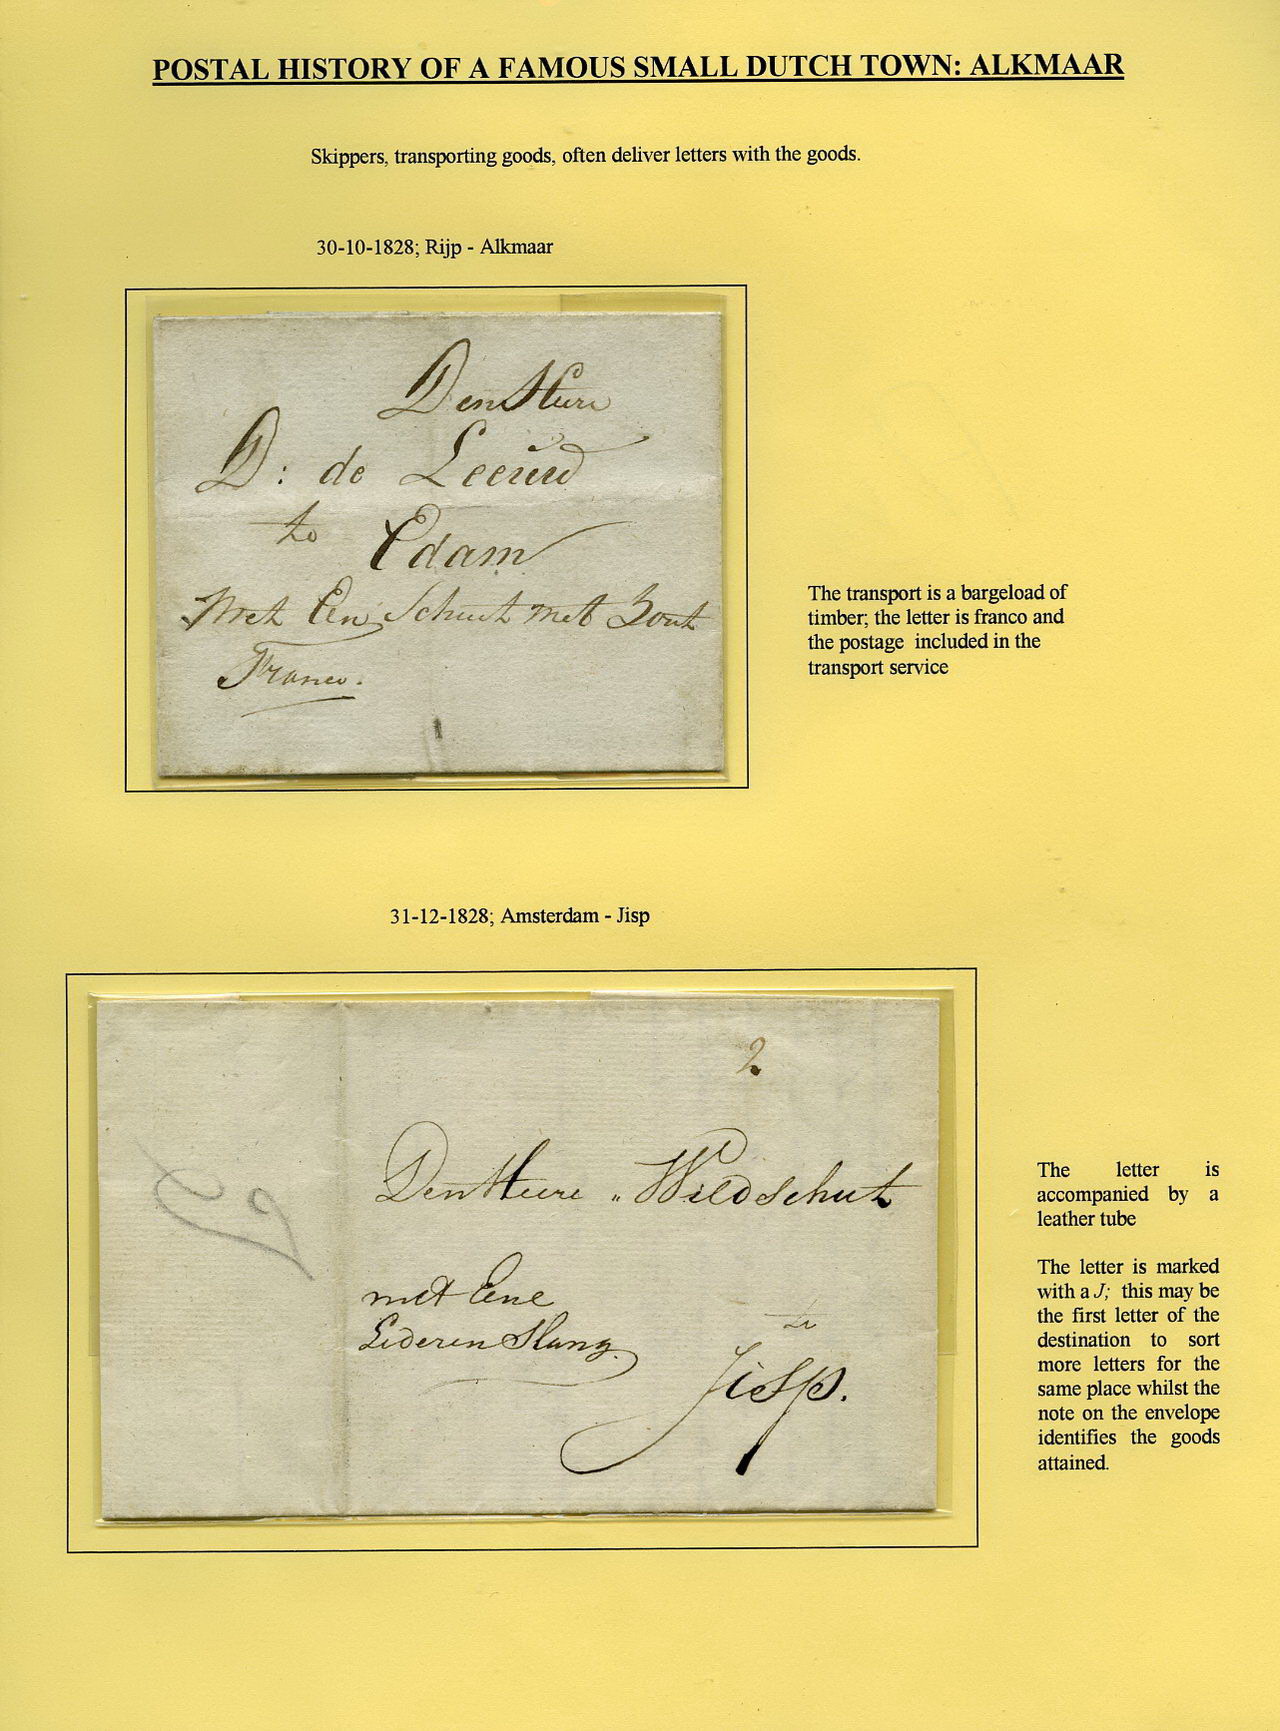 POSTAL HISTORY OF A FAMOUS SMALL DUTCH TOWN: ALKMAAR
Skippers, transporting goods, often deliver letters with the goods.
30-10-1828; Rijp - Alkmaar
Den Heere
D: de Leeuw
te Edam
Met Een Schuit met Hout
Franco.
The transport is a bargeload of
timber; the letter is franco and
the postage included in the
transport service
31-12-1828; Amsterdam - Jisp
2
Den Heere „ Wildschut
met Eene
Lederen Slang.
te
Jisp.
J
The letter is
accompanied by a
leather tube
The letter is marked
with a J; this may be
the first letter of the
destination to sort
more letters for the
same place whilst the
note on the envelope
identifies the goods
attained.